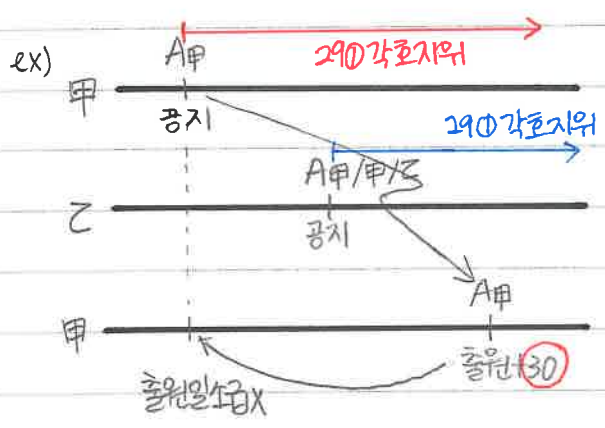 ex)
A甲
29①각호지위
甲
공지
29①각호지위
A甲/甲/乙
乙
공지
A甲
甲
출원+30
출원일소급X